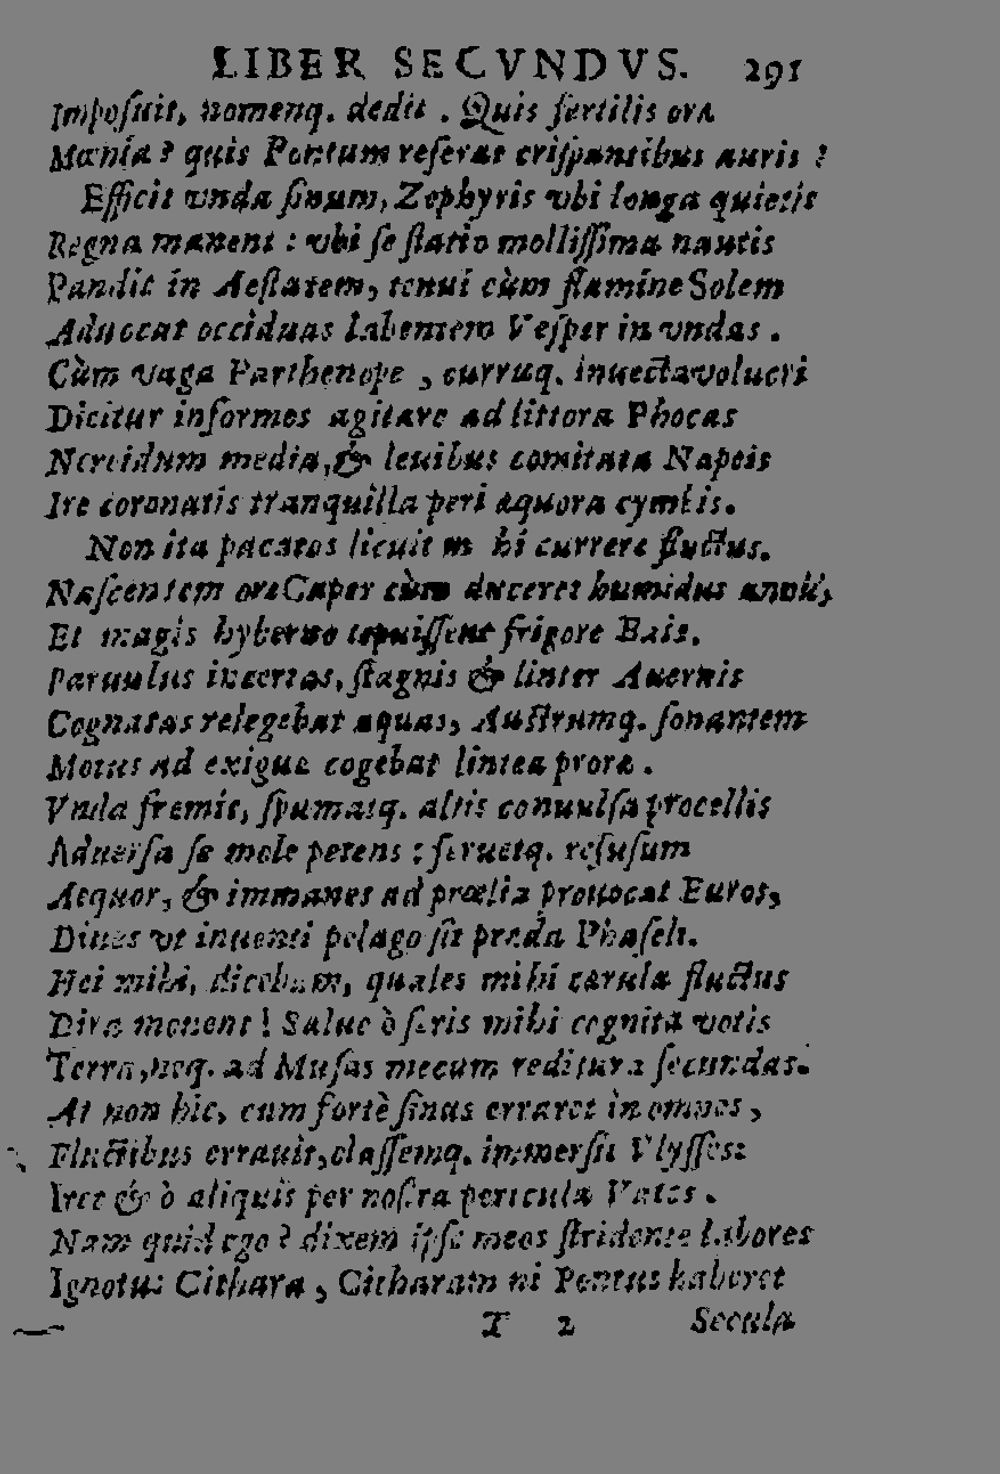 LIBER SECVNDVS. 291
Imposuit, nomenq. dedit. Quis fertilis ora
Mœnia? quis Pontum referat crispantibus auris?
Efficit vnda sinum, Zephyris vbi longa quietis
Regna manent: vbi se statio mollissima nautis
Pandit in Aestatem, tenui cùm flamine Solem
Aduocat occiduas labentem Vesper in vndas.
Cùm vaga Parthenope, curruq. inuecta volucri
Dicitur informes agitare ad littora Phocas
Nereidum media, & leuibus comitata Napeis
Ire coronatis tranquilla peri aquora cymbis.
Non ita pacatos licuit m hi currere fluctus.
Nascentem ore Caper cùm duceret humidus annū,
Et magis hyberno tepuissent frigore Baie.
Paruulus incertas, stagnis & linter Auernis
Cognatas relegebat aquas, Austrumq. sonantem
Motus ad exigue cogebat lintea prore.
Vnda fremit, spumatq. altis conuulsa procellis
Aduersa se mole petens: feruetq. refusum
Aequor, & immanes ad prœlia prouocat Euros,
Diues vt inuenti pelago sit preda Phaseli.
Hei mihi, dicebam, quales mihi cerula fluctus
Diva mouent! Salue ò seris mihi cognita votis
Terra, neq. ad Musas mecum reditura secundas.
At non hic, cum fortè sinus erraret in omnes,
Fluctibus errauit, classemq. immersit Vlysses:
Iret & ò aliquis per nostra pericula Vates.
Nam quid ego? dixem ipse meos stridente labores
Ignotus Cithara, Citharam ni Pontus haberet
T 2 Secula